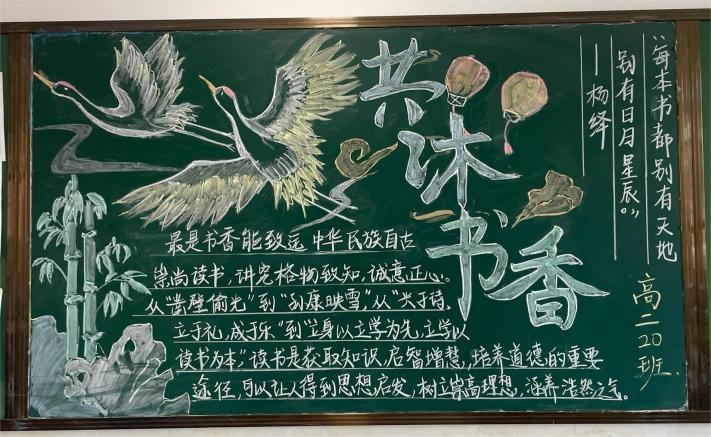 共沐书香
“每本书都别有天地
别有日月星辰。”
——杨绛
最是书香能致远 中华民族自古
崇尚读书，讲究格物致知，诚意正心。
从“凿壁偷光”到“孙康映雪”，从“兴于诗、
立于礼，成于乐”到“立身以立学为先，立学以
读书为本”，读书是获取知识，启智增慧，培养道德的重要
途径，可以让人得到思想启发，树立崇高理想，涵养浩然之气。
高二20班.